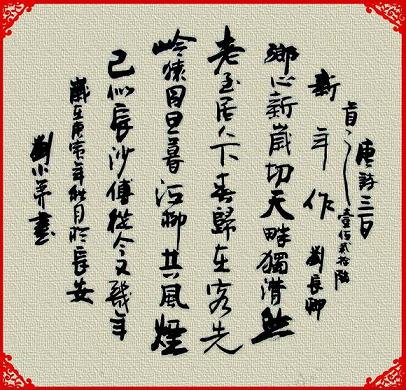 唐詩三百
首之壹佰貳拾
新年作 劉長卿
鄉心新歲切天畔獨潸然
老至居人下春歸在客先
嶺猿同旦暮江柳共風煙
已似長沙傅從今又幾年
歲在庚寅年月於長安
劉小書